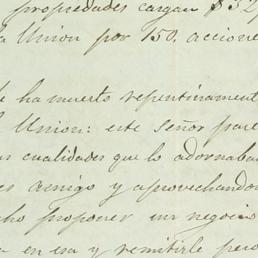 propiedades cargan $32
la Union por 150. accione
ha muerto repentinament
Union: este señor pare
cualidades que lo adornaba
es amigo y aprovechando
cho proponer un negocio
en esa y remitirle pero